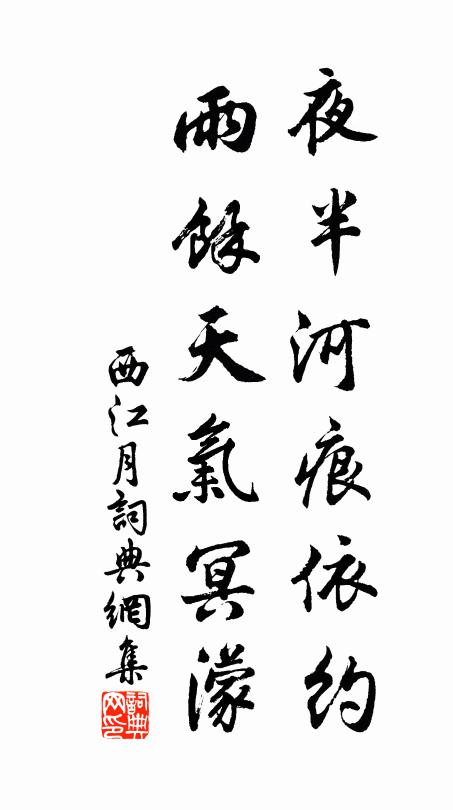 夜半河痕依約
雨餘天氣冥濛
西江月詞典網集
詞典網印